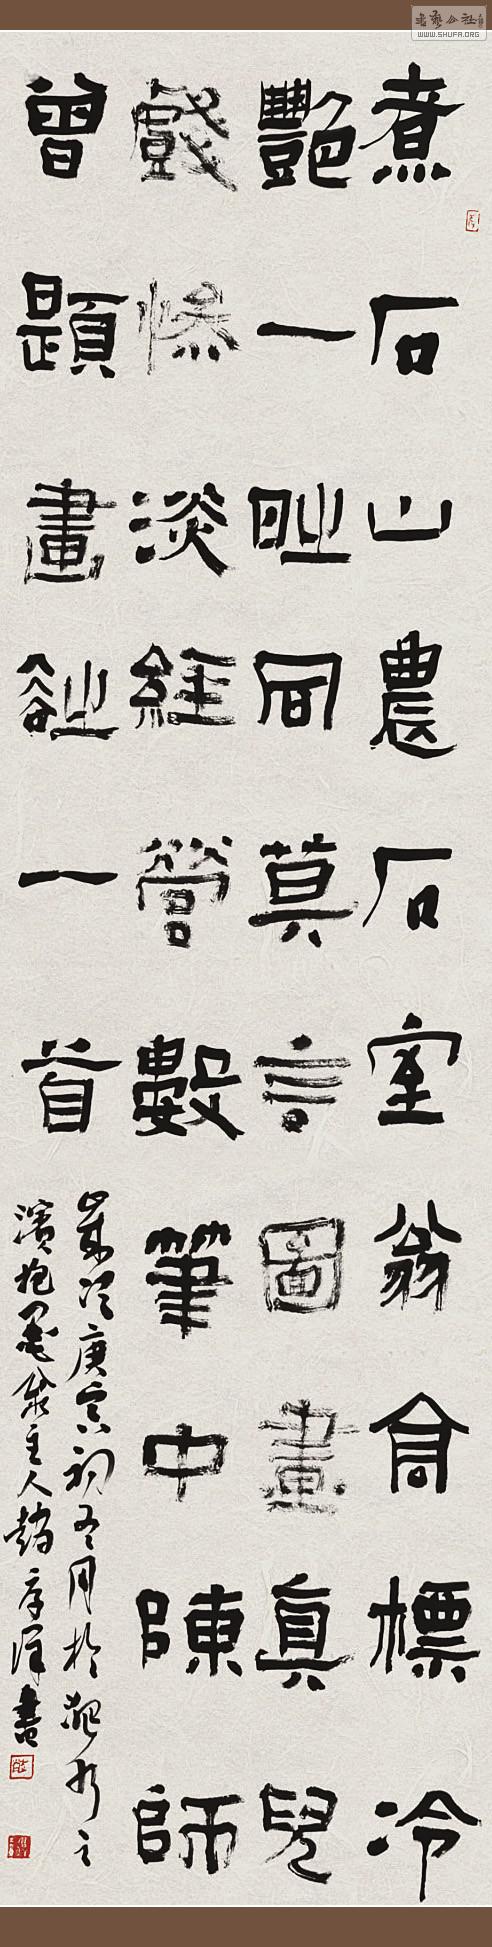 煮石山農石室翁高標冷
艷一時同莫言圖畫真兒
戲慘淡經營數筆中陳師
曾題畫詩一首
歲次庚寅初冬月於淝水之
濱抱墨主人趙書
书艺公社
WWW.SHUFA.ORG